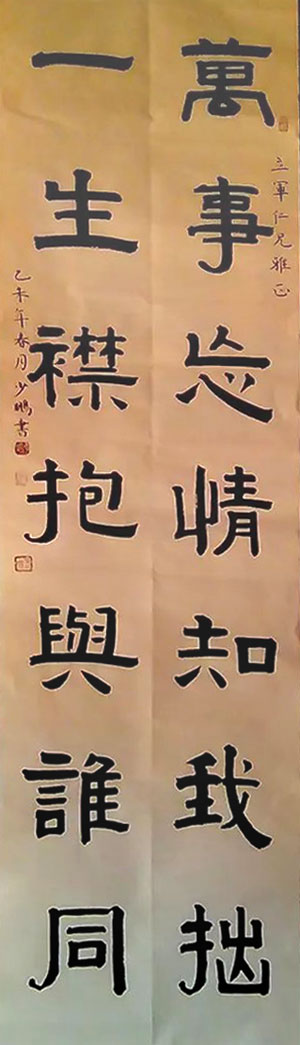 萬事忘情知我拙
立軍仁兄雅正
一生襟抱與誰同
乙未年春月少鵬書